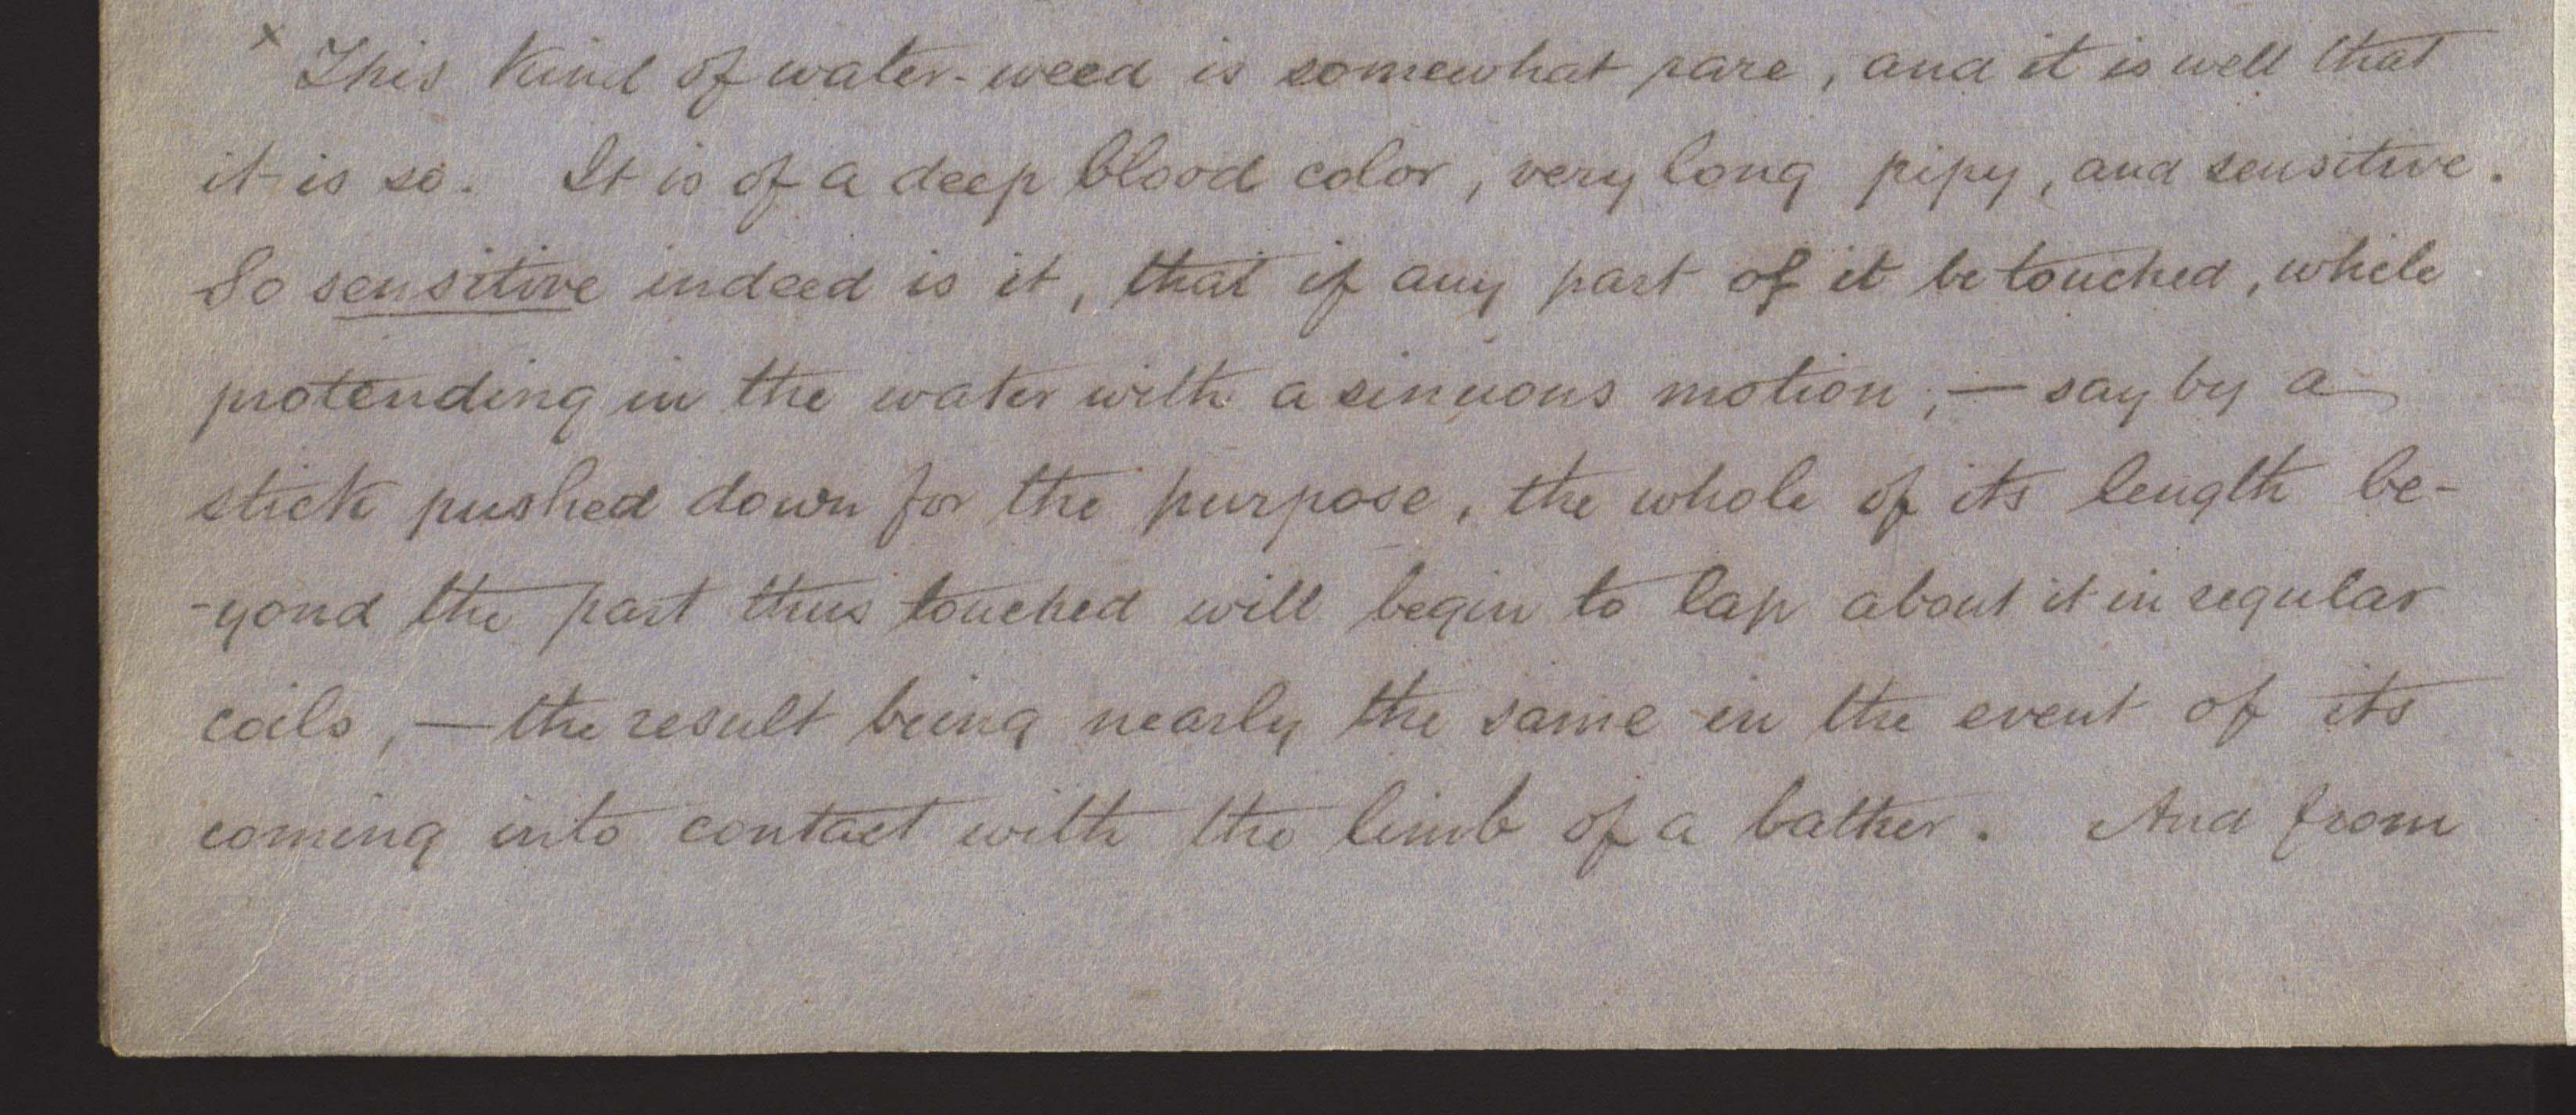 x This kind of water-weed is somewhat rare, and it is well that
it is so. It is of a deep blood color, very long pipy, and sensitive.
So sensitive indeed is it, that if any part of it be touched, while
protending in the water with a sinuous motion,—say by a
stick pushed down for the purpose, the whole of its length be-
-yond the part thus touched will begin to lap about it in regular
coils,—the result being nearly the same in the event of its
coming into contact with the limb of a bather. And from